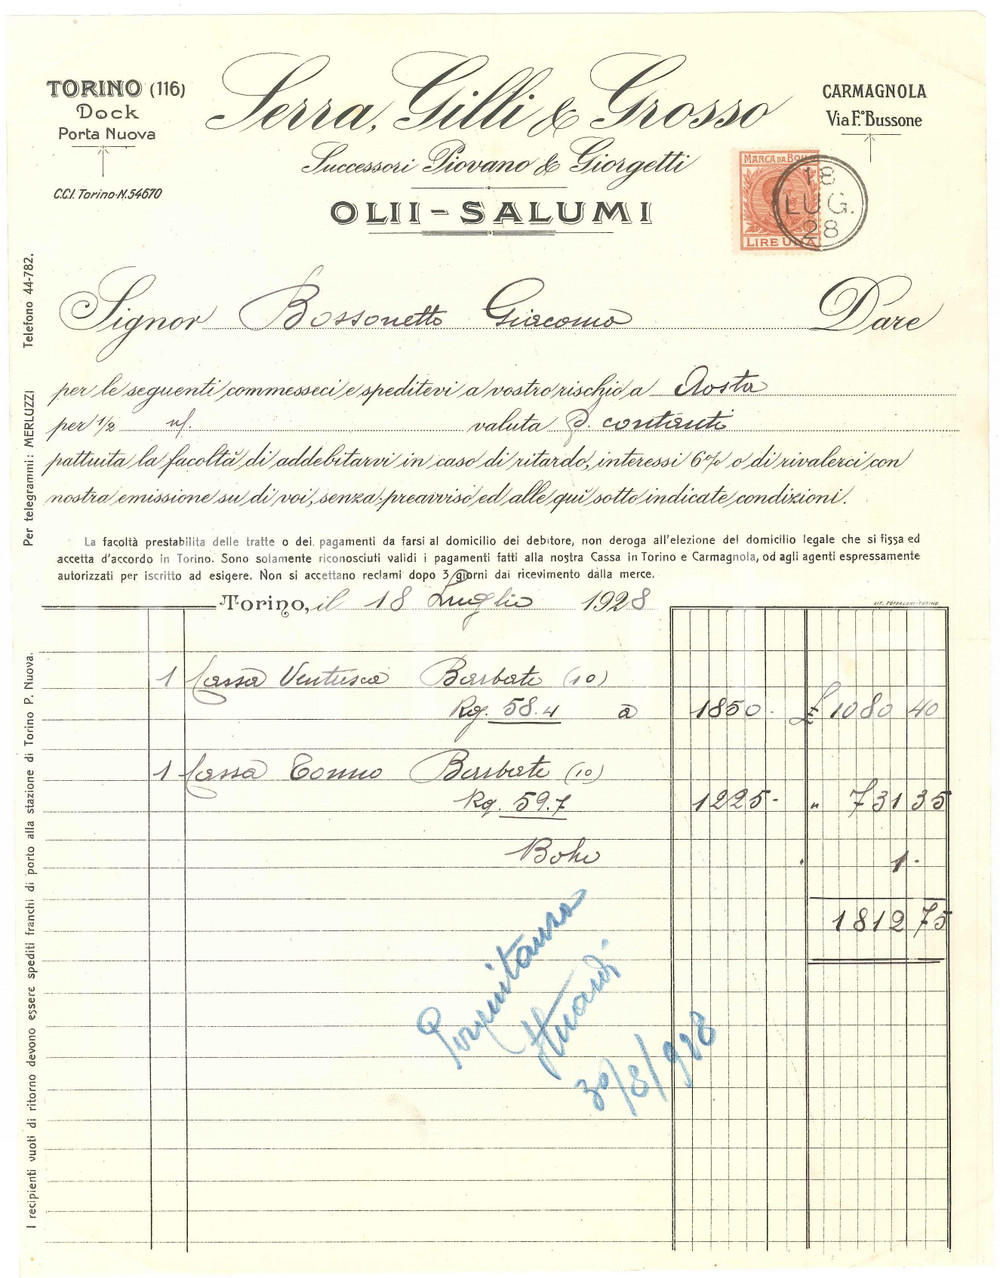 TORINO (116)
Dock
Porta Nuova
C.C.I. Torino-N. 54670
Serra, Gilli & Grosso
Successori Piovano & Giorgetti
OLII-SALUMI
CARMAGNOLA
Via F.º Bussone
MARCA DA BOLLO
LIRE UNA
18
LUG.
28
Per telegrammi: MERLUZZI Telefono 44-782.
Signor Bossonetto Giacomo Dare
per le seguenti commesseci e speditevi a vostro rischio a Aosta
per 1/2 valuta p. contanti
pattuita la facoltà di addebitarvi in caso di ritardo, interessi 6% o di rivalerci con
nostra emissione su di voi, senza preavviso ed alle qui sotto indicate condizioni.
La facoltà prestabilita delle tratte o dei pagamenti da farsi al domicilio del debitore, non deroga all'elezione del domicilio legale che si fissa ed
accetta d'accordo in Torino. Sono solamente riconosciuti validi i pagamenti fatti alla nostra Cassa in Torino e Carmagnola, od agli agenti espressamente
autorizzati per iscritto ad esigere. Non si accettano reclami dopo 3 giorni dal ricevimento dalla merce.
Torino, il 18 Luglio 1928
1 Cassa Ventresca Barbate (10)
Kg. 58.4 a 1850.- £ 1080 40
1 Cassa Tonno Barbate (10)
Kg. 59.7 1225- " 731 35
Bollo 1.-
1812 75
30/8/928
I recipienti vuoti di ritorno devono essere spediti franchi di porto alla stazione di Torino P. Nuova.